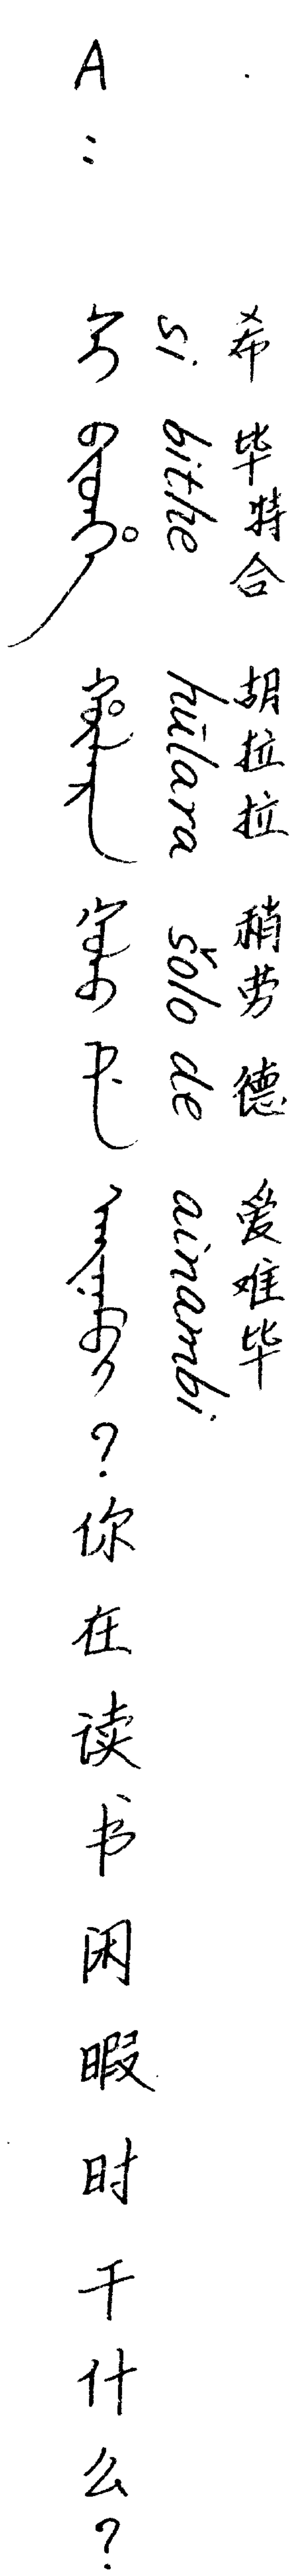 A: ᠰᡳ ᠪᡳᡨᡥᡝ ᡥᡡᠯᠠᡵᠠ ᡧᠣᠯᠣ ᡩᡝ ᠠᡳᠨᠠᠮᠪᡳ? 你在读书闲暇时干什么?
si bithe hūlara šolo de ainambi
希 毕特合 胡拉拉 稍劳 德 爱难毕